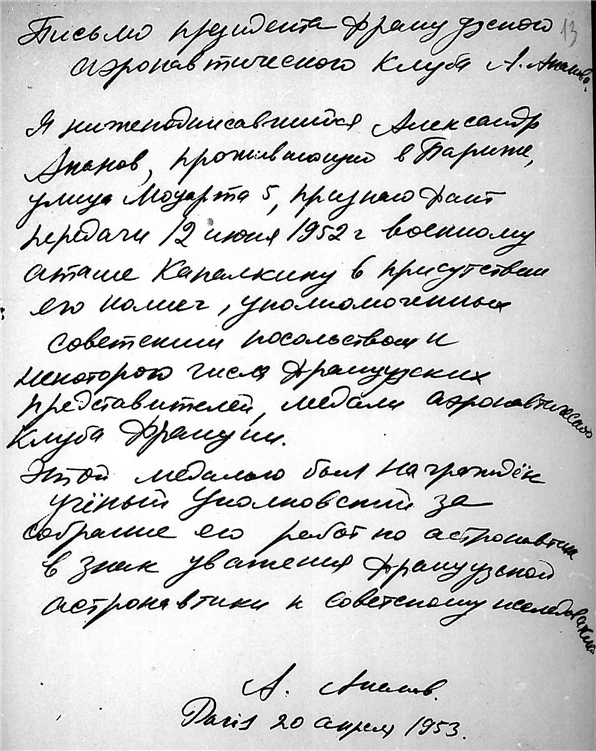 Письмо президента Французского 13
аэронавтического клуба А. Ананова.
Я нижеподписавшийся Александр
Ананов, проживающий в Париже,
улица Моцарта 5, признаю факт
передачи 12 июня 1952 г военному
аташе Капалкину в присутствии
его коллег, уполномоченных
советским посольством и
некоторого числа французских
представителей, медали аэронавтического
клуба Франции.
Этой медалью был награждён
учёный Циолковский за
собрание его работ по астронавтике
в знак уважения французской
астронавтики к советскому
А. Ананов.
Paris 20 апреля 1953.